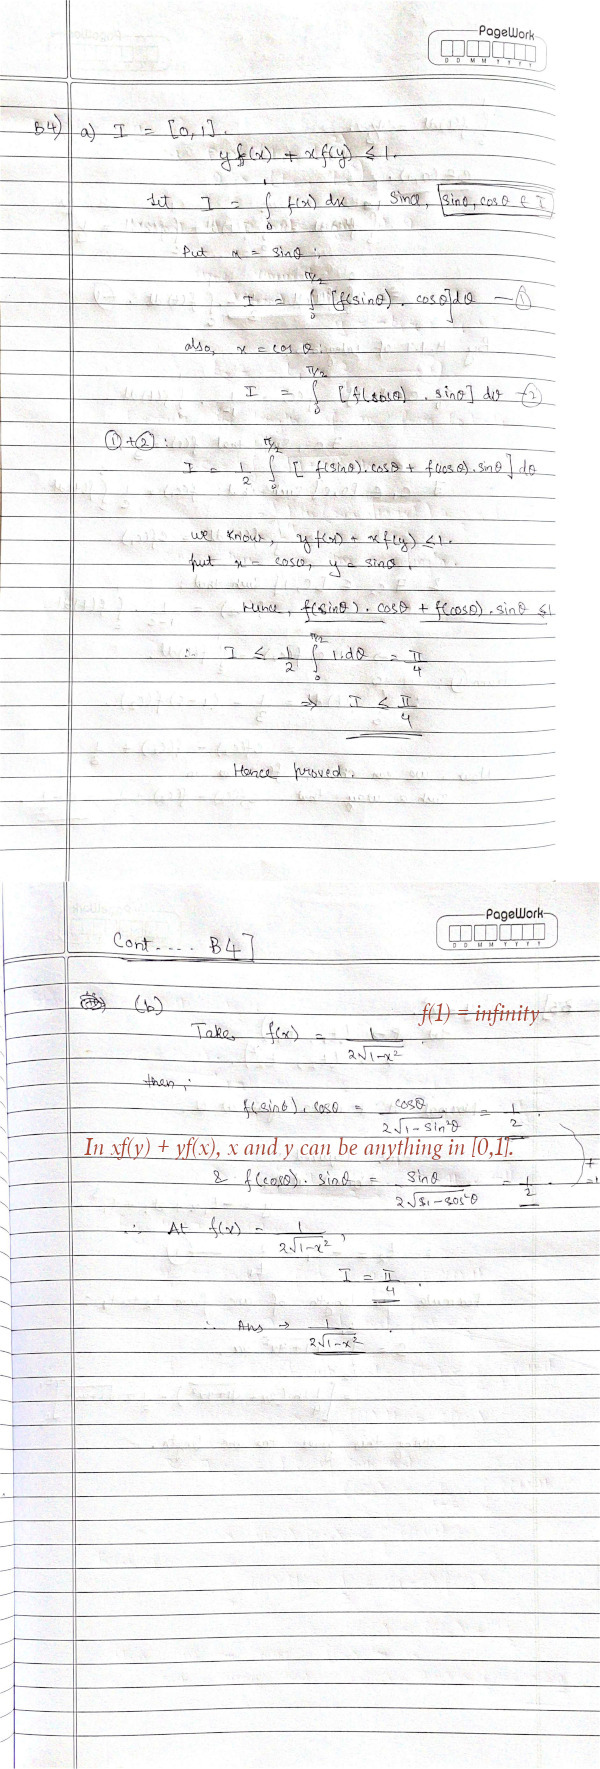 PageWork
D D M M Y Y Y Y
B4) a) I = [0,1].
y f(x) + x f(y) ≤ 1.
Let I = ∫₀¹ f(x) dx , sinθ, sinθ, cosθ ∈ I
Put x = sinθ :,
I = ∫₀^{π/2} [f(sinθ) . cosθ] dθ — ①
also, x = cos θ
I = ∫₀^{π/2} [f(cosθ) . sinθ] dθ — ②
① + ② :
I = 1/2 ∫₀^{π/2} [ f(sinθ).cosθ + f(cosθ).sinθ ] dθ
we know, y f(x) + x f(y) ≤ 1.
put x = cosθ, y = sinθ.
Hence, f(sinθ) . cosθ + f(cosθ) . sinθ ≤ 1
∴ I ≤ 1/2 ∫₀^{π/2} 1.dθ = π/4
⇒ I ≤ π/4
Hence proved.
PageWork
D D M M Y Y Y Y
Cont .... B4]
(b)
f(1) = infinity
Take, f(x) = 1/(2√(1-x²)) .
then ;
f(sinθ). cosθ = cosθ/(2√(1-sin²θ)) = 1/2 .
In xf(y) + yf(x), x and y can be anything in [0,1].
& f(cosθ). sinθ = sinθ/(2√(1-cos²θ)) = 1/2 .
∴ At f(x) = 1/(2√(1-x²)) ,
I = π/4 .
∴ Ans → 1/(2√(1-x²)) .